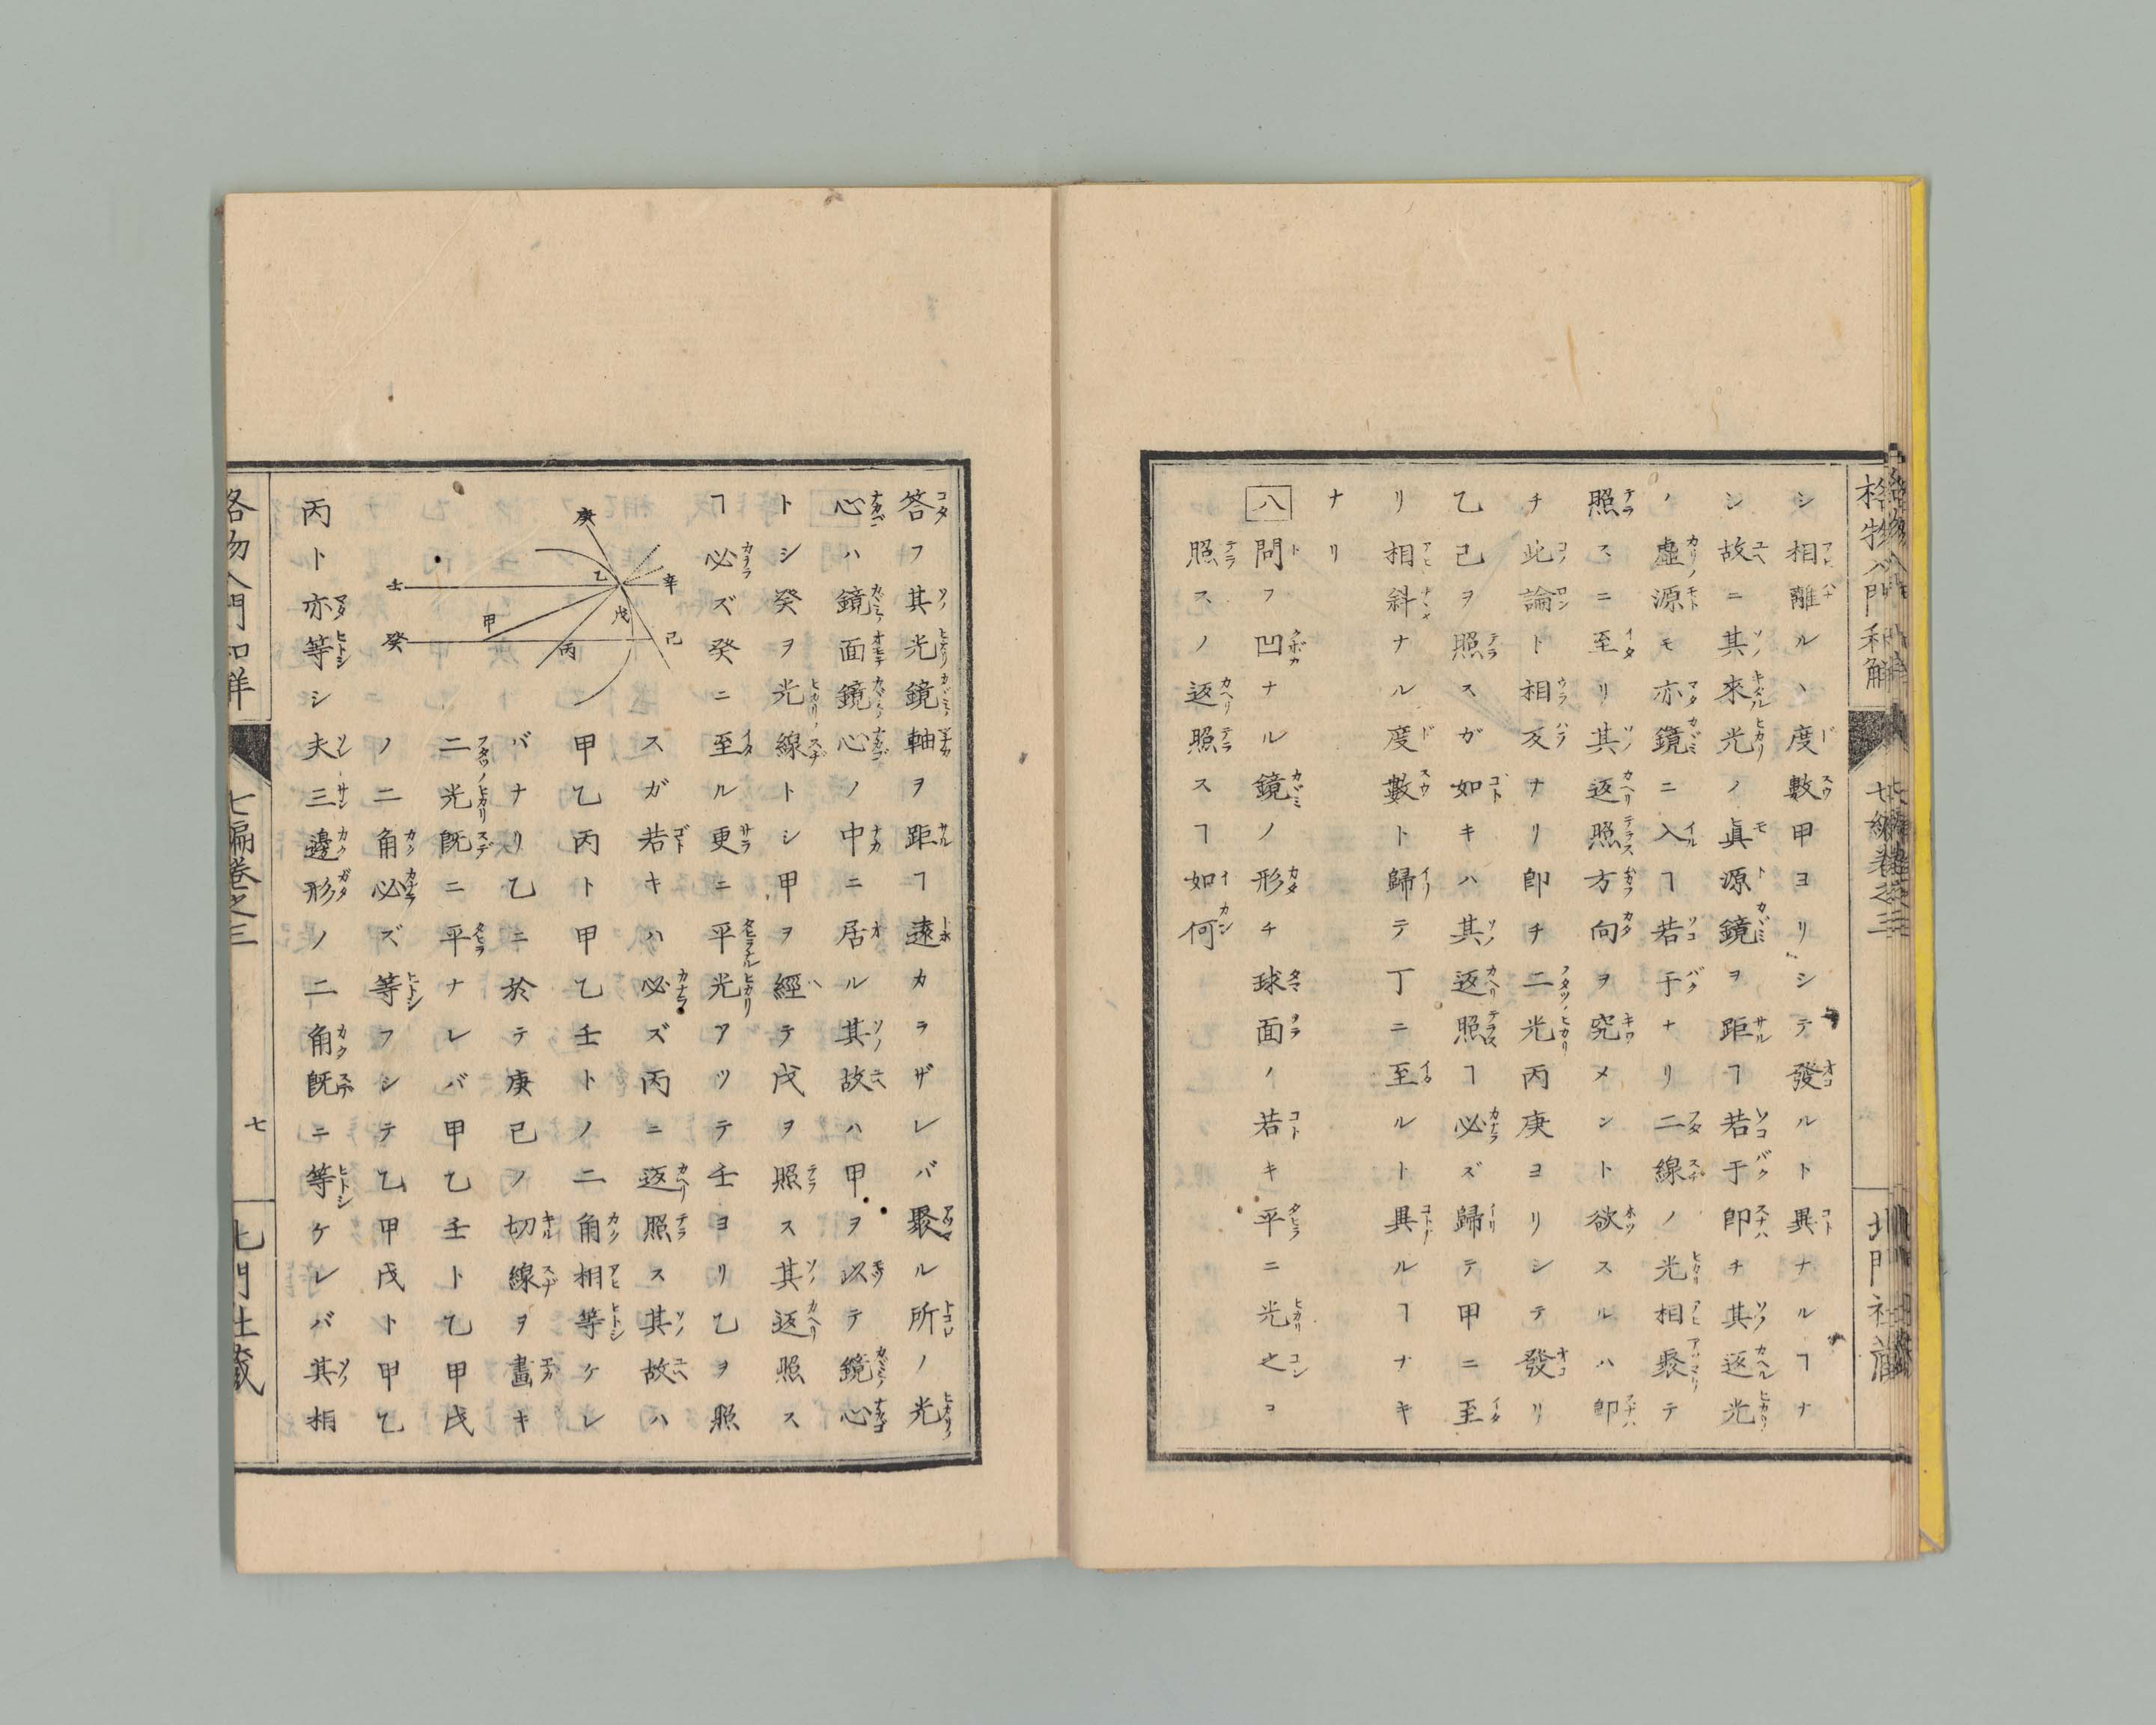 格物入門和解 七編卷之三 北門社藏
シ相離ルヽ度數甲ヨリシテ發ルト異ナルヿナ
シ故ニ其來光ノ眞源鏡ヲ距ヿ若干即チ其返光
ノ虛源モ亦鏡ニ入ヿ若干ナリ二線ノ光相聚テ
照スニ至リ其返照方向ヲ究メント欲スルハ即
チ此論ト相反ナリ即チ二光丙庚ヨリシテ發リ
乙己ヲ照スガ如キハ其返照ヿ必ズ歸テ甲ニ至
リ相斜ナル度數ト歸テ丁ニ至ルト異ルヿナキ
ナリ
八問フ凹ナル鏡ノ形チ球面ノ若キ平ニ光之コ
照スノ返照スヿ如何
答フ其光鏡軸ヲ距ヿ遠カラザレバ聚ル所ノ光
心ハ鏡面鏡心ノ中ニ居ル其故ハ甲ヲ以テ鏡心
トシ癸ヲ光線トシ甲ヲ經テ戊ヲ照ス其返照ス
ヿ必ズ癸ニ至ル更ニ平光アツテ壬ヨリ乙ヲ照
スガ若キハ必ズ丙ニ返照ス其故ハ
甲乙丙ト甲乙壬トノ二角相等ケレ
バナリ乙ニ於テ庚己ノ切線ヲ畫キ
二光既ニ平ナレバ甲乙壬ト乙甲戊
ノ二角必ズ等フシテ乙甲戊ト甲乙
丙ト亦等シ夫三邊形ノ二角既ニ等ケレバ其相
庚
辛
乙
壬
戊
甲
己
癸
丙
格物入門和解 七編卷之三 七 北門社藏